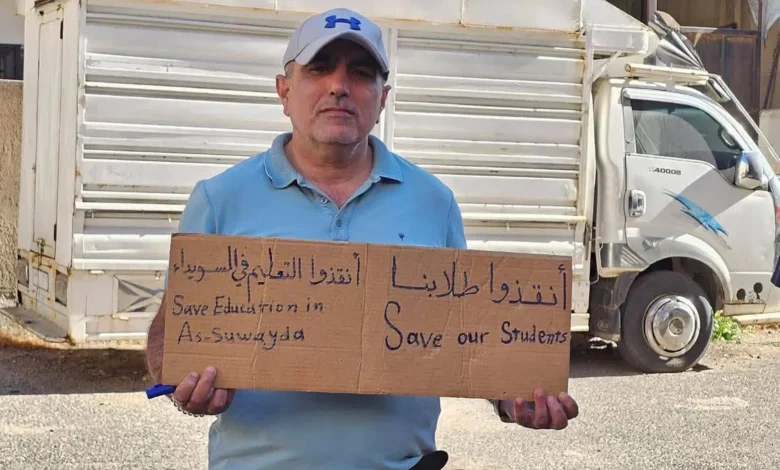 أنقذوا طلابنا
Save our Students
أنقذوا التعليم في السويداء
Save Education in
As-Suwayda
A40008